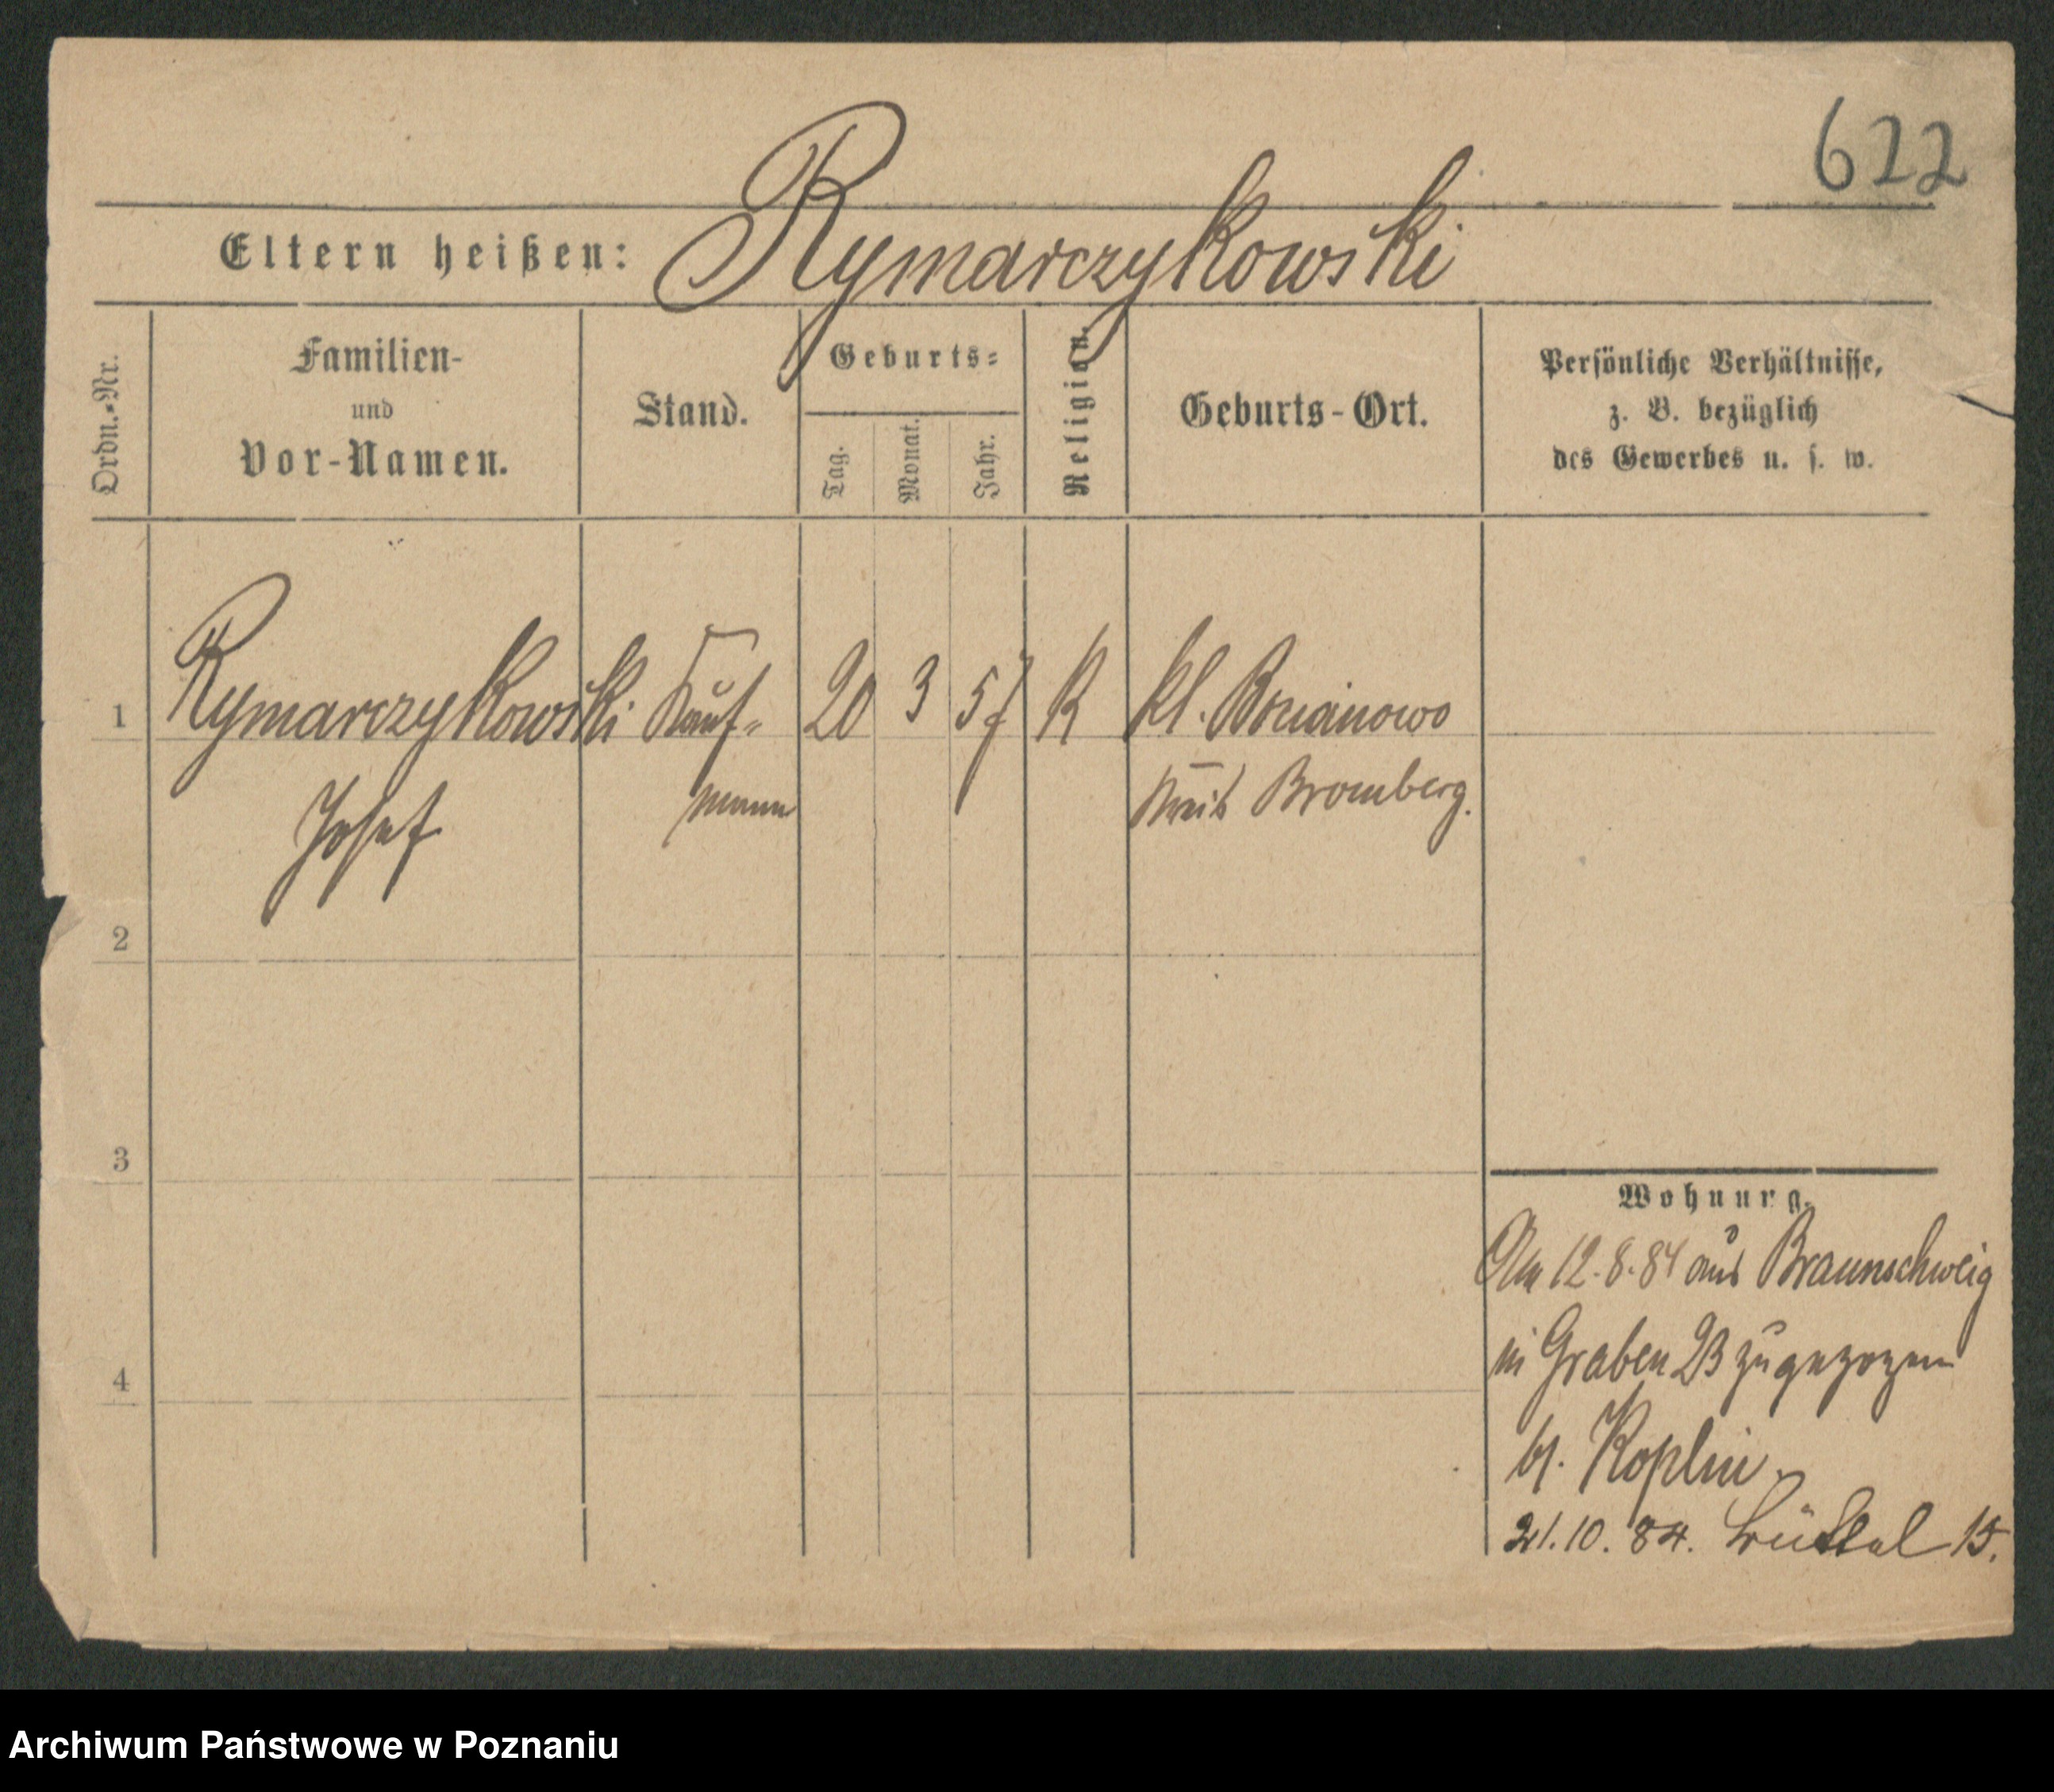 622
Eltern heißen: Rymarczykowski
Ordn.-Nr.
Familien-
und
Vor-Namen.
Stand.
Geburts-
Tag.
Monat.
Jahr.
Religion.
Geburts-Ort.
Persönliche Verhältnisse,
z. B. bezüglich
des Gewerbes u. s. w.
1 Rymarczykowski Kauf- 20 3 57 K kl. Bocianowo
Josef mann Kreis Bromberg.
2
3
4
Wohnung.
Am 12.8.84 aus Braunschweig
in Graben 23 zugezogen
b/. Koplin
21.10.84. 15.
Archiwum Państwowe w Poznaniu